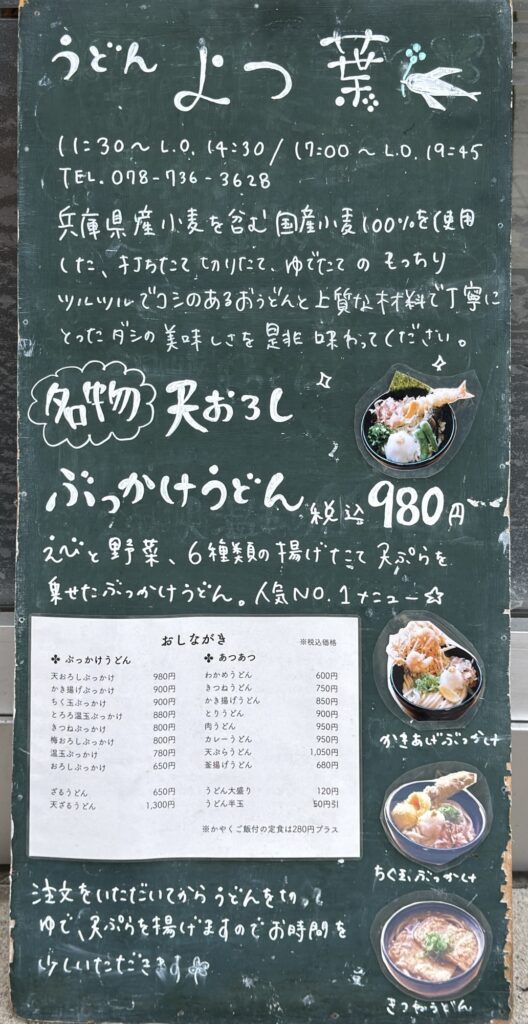 うどん よつ葉
11:30〜L.O. 14:30/17:00〜L.O. 19:45
TEL. 078-736-3628
兵庫県産小麦を含む国産小麦100%を使用
した、打ちたて切りたて、ゆでたてのもっちり
ツルツルでコシのあるおうどんと上質な材料で丁寧に
とったダシの美味しさを是非味わってください。
名物 天おろし
ぶっかけうどん 税込980円
えびと野菜、6種類の揚げたて天ぷらを
乗せたぶっかけうどん。人気NO.1メニュー☆
おしながき ※税込価格
✤ ぶっかけうどん
天おろしぶっかけ 980円
かき揚げぶっかけ 900円
ちく玉ぶっかけ 900円
とろろ温玉ぶっかけ 880円
きつねぶっかけ 800円
梅おろしぶっかけ 800円
温玉ぶっかけ 780円
おろしぶっかけ 650円
ざるうどん 650円
天ざるうどん 1,300円
✤ あつあつ
わかめうどん 600円
きつねうどん 750円
かき揚げうどん 850円
とりうどん 900円
肉うどん 950円
カレーうどん 950円
天ぷらうどん 1,050円
釜揚げうどん 680円
うどん大盛り 120円
うどん半玉 50円引
※かやくご飯付の定食は280円プラス
かきあげぶっかけ
ちく玉ぶっかけ
きつねうどん
注文をいただいてからうどんを切って
ゆで、天ぷらを揚げますのでお時間を
少しいただきます